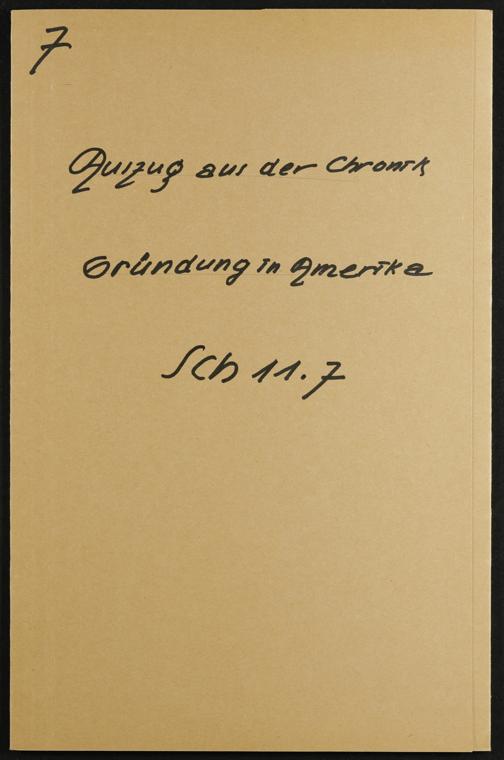 7
Auszug aus der Chronik
Gründung in Amerika
Sch 11.7